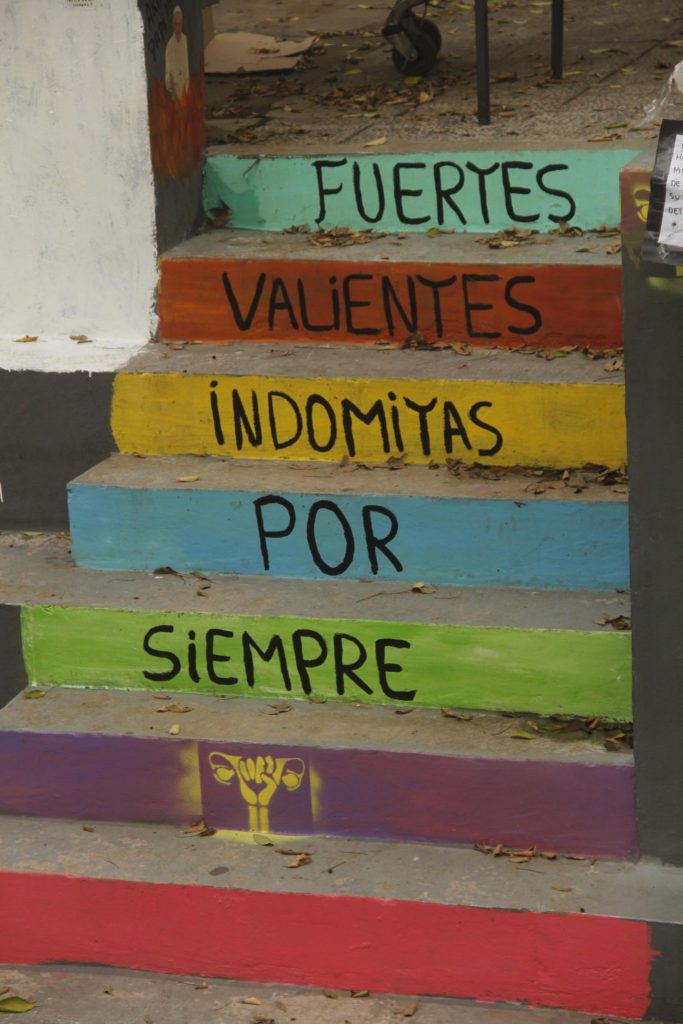 FUERTES
VALiENTES
iNDOMiTAS
POR
SiEMPRE